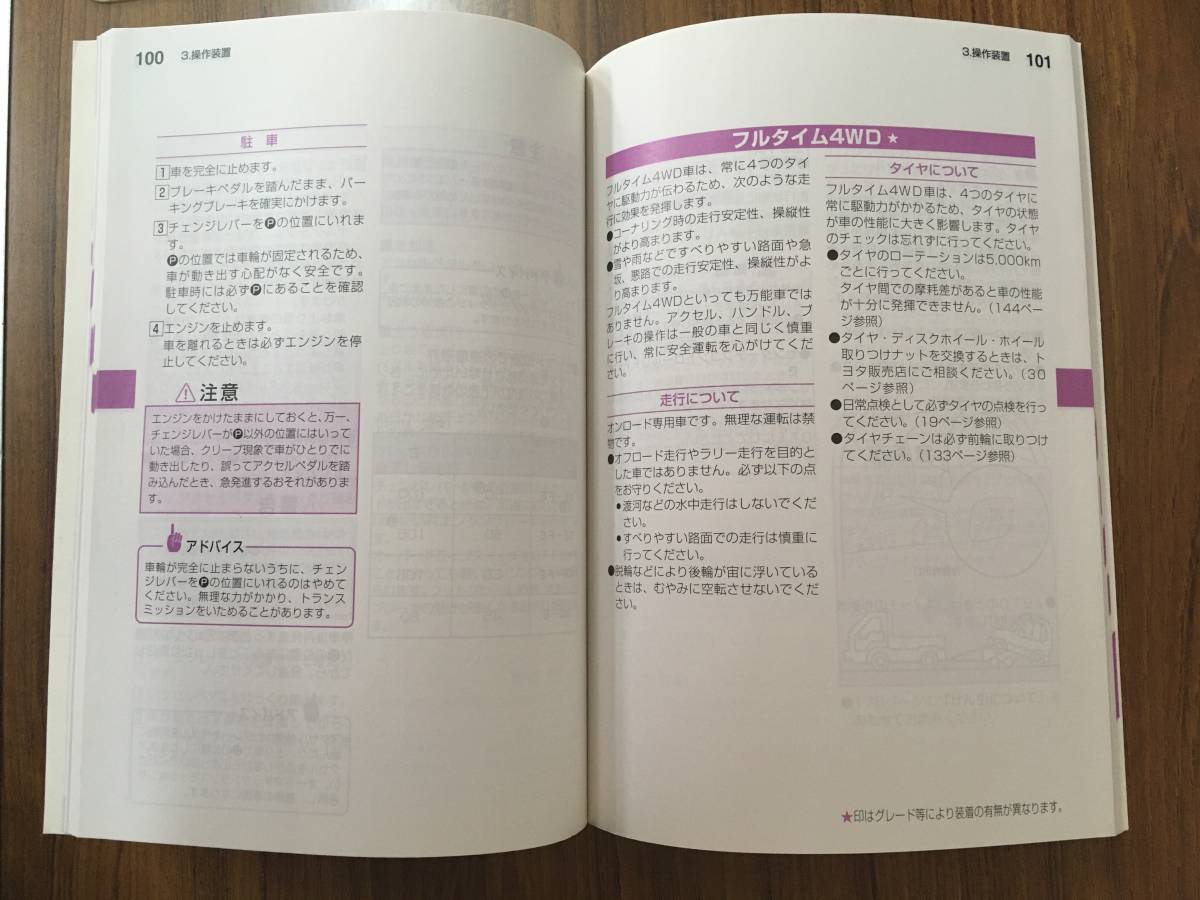 100 3.操作装置
駐 車
1 車を完全に止めます。
2 ブレーキペダルを踏んだまま、パー
キングブレーキを確実にかけます。
3 チェンジレバーをPの位置にいれま
す。
Pの位置では車輪が固定されるため、
車が動き出す心配がなく安全です。
駐車時には必ずPにあることを確認
してください。
4 エンジンを止めます。
車を離れるときは必ずエンジンを停
止してください。
注意
エンジンをかけたままにしておくと、万一、
チェンジレバーがP以外の位置にはいって
いた場合、クリープ現象で車がひとりでに
動き出したり、誤ってアクセルペダルを踏
み込んだとき、急発進するおそれがありま
す。
アドバイス
車輪が完全に止まらないうちに、チェン
ジレバーをPの位置にいれるのはやめて
ください。無理な力がかかり、トランス
ミッションをいためることがあります。
3.操作装置 101
フルタイム4WD★
フルタイム4WD車は、常に4つのタイ
ヤに駆動力が伝わるため、次のような走
行に効果を発揮します。
●コーナリング時の走行安定性、操縦性
がより高まります。
●雪や雨などですべりやすい路面や急
坂、悪路での走行安定性、操縦性がよ
り高まります。
フルタイム4WDといっても万能車では
ありません。アクセル、ハンドル、ブ
レーキの操作は一般の車と同じく慎重
に行い、常に安全運転を心がけてくだ
さい。
走行について
オンロード専用車です。無理な運転は禁
物です。
●オフロード走行やラリー走行を目的と
した車ではありません。必ず以下の点
をお守りください。
•渡河などの水中走行はしないでくだ
さい。
•すべりやすい路面での走行は慎重に
行ってください。
●脱輪などにより後輪が宙に浮いている
ときは、むやみに空転させないでくだ
さい。
タイヤについて
フルタイム4WD車は、4つのタイヤに
常に駆動力がかかるため、タイヤの状態
が車の性能に大きく影響します。タイヤ
のチェックは忘れずに行ってください。
●タイヤのローテーションは5,000km
ごとに行ってください。
タイヤ間での摩耗差があると車の性能
が十分に発揮できません。(144ペー
ジ参照)
●タイヤ・ディスクホイール・ホイール
取りつけナットを交換するときは、ト
ヨタ販売店にご相談ください。(30
ページ参照)
●日常点検として必ずタイヤの点検を行っ
てください。(19ページ参照)
●タイヤチェーンは必ず前輪に取りつけ
てください。(133ページ参照)
★印はグレード等により装着の有無が異なります。